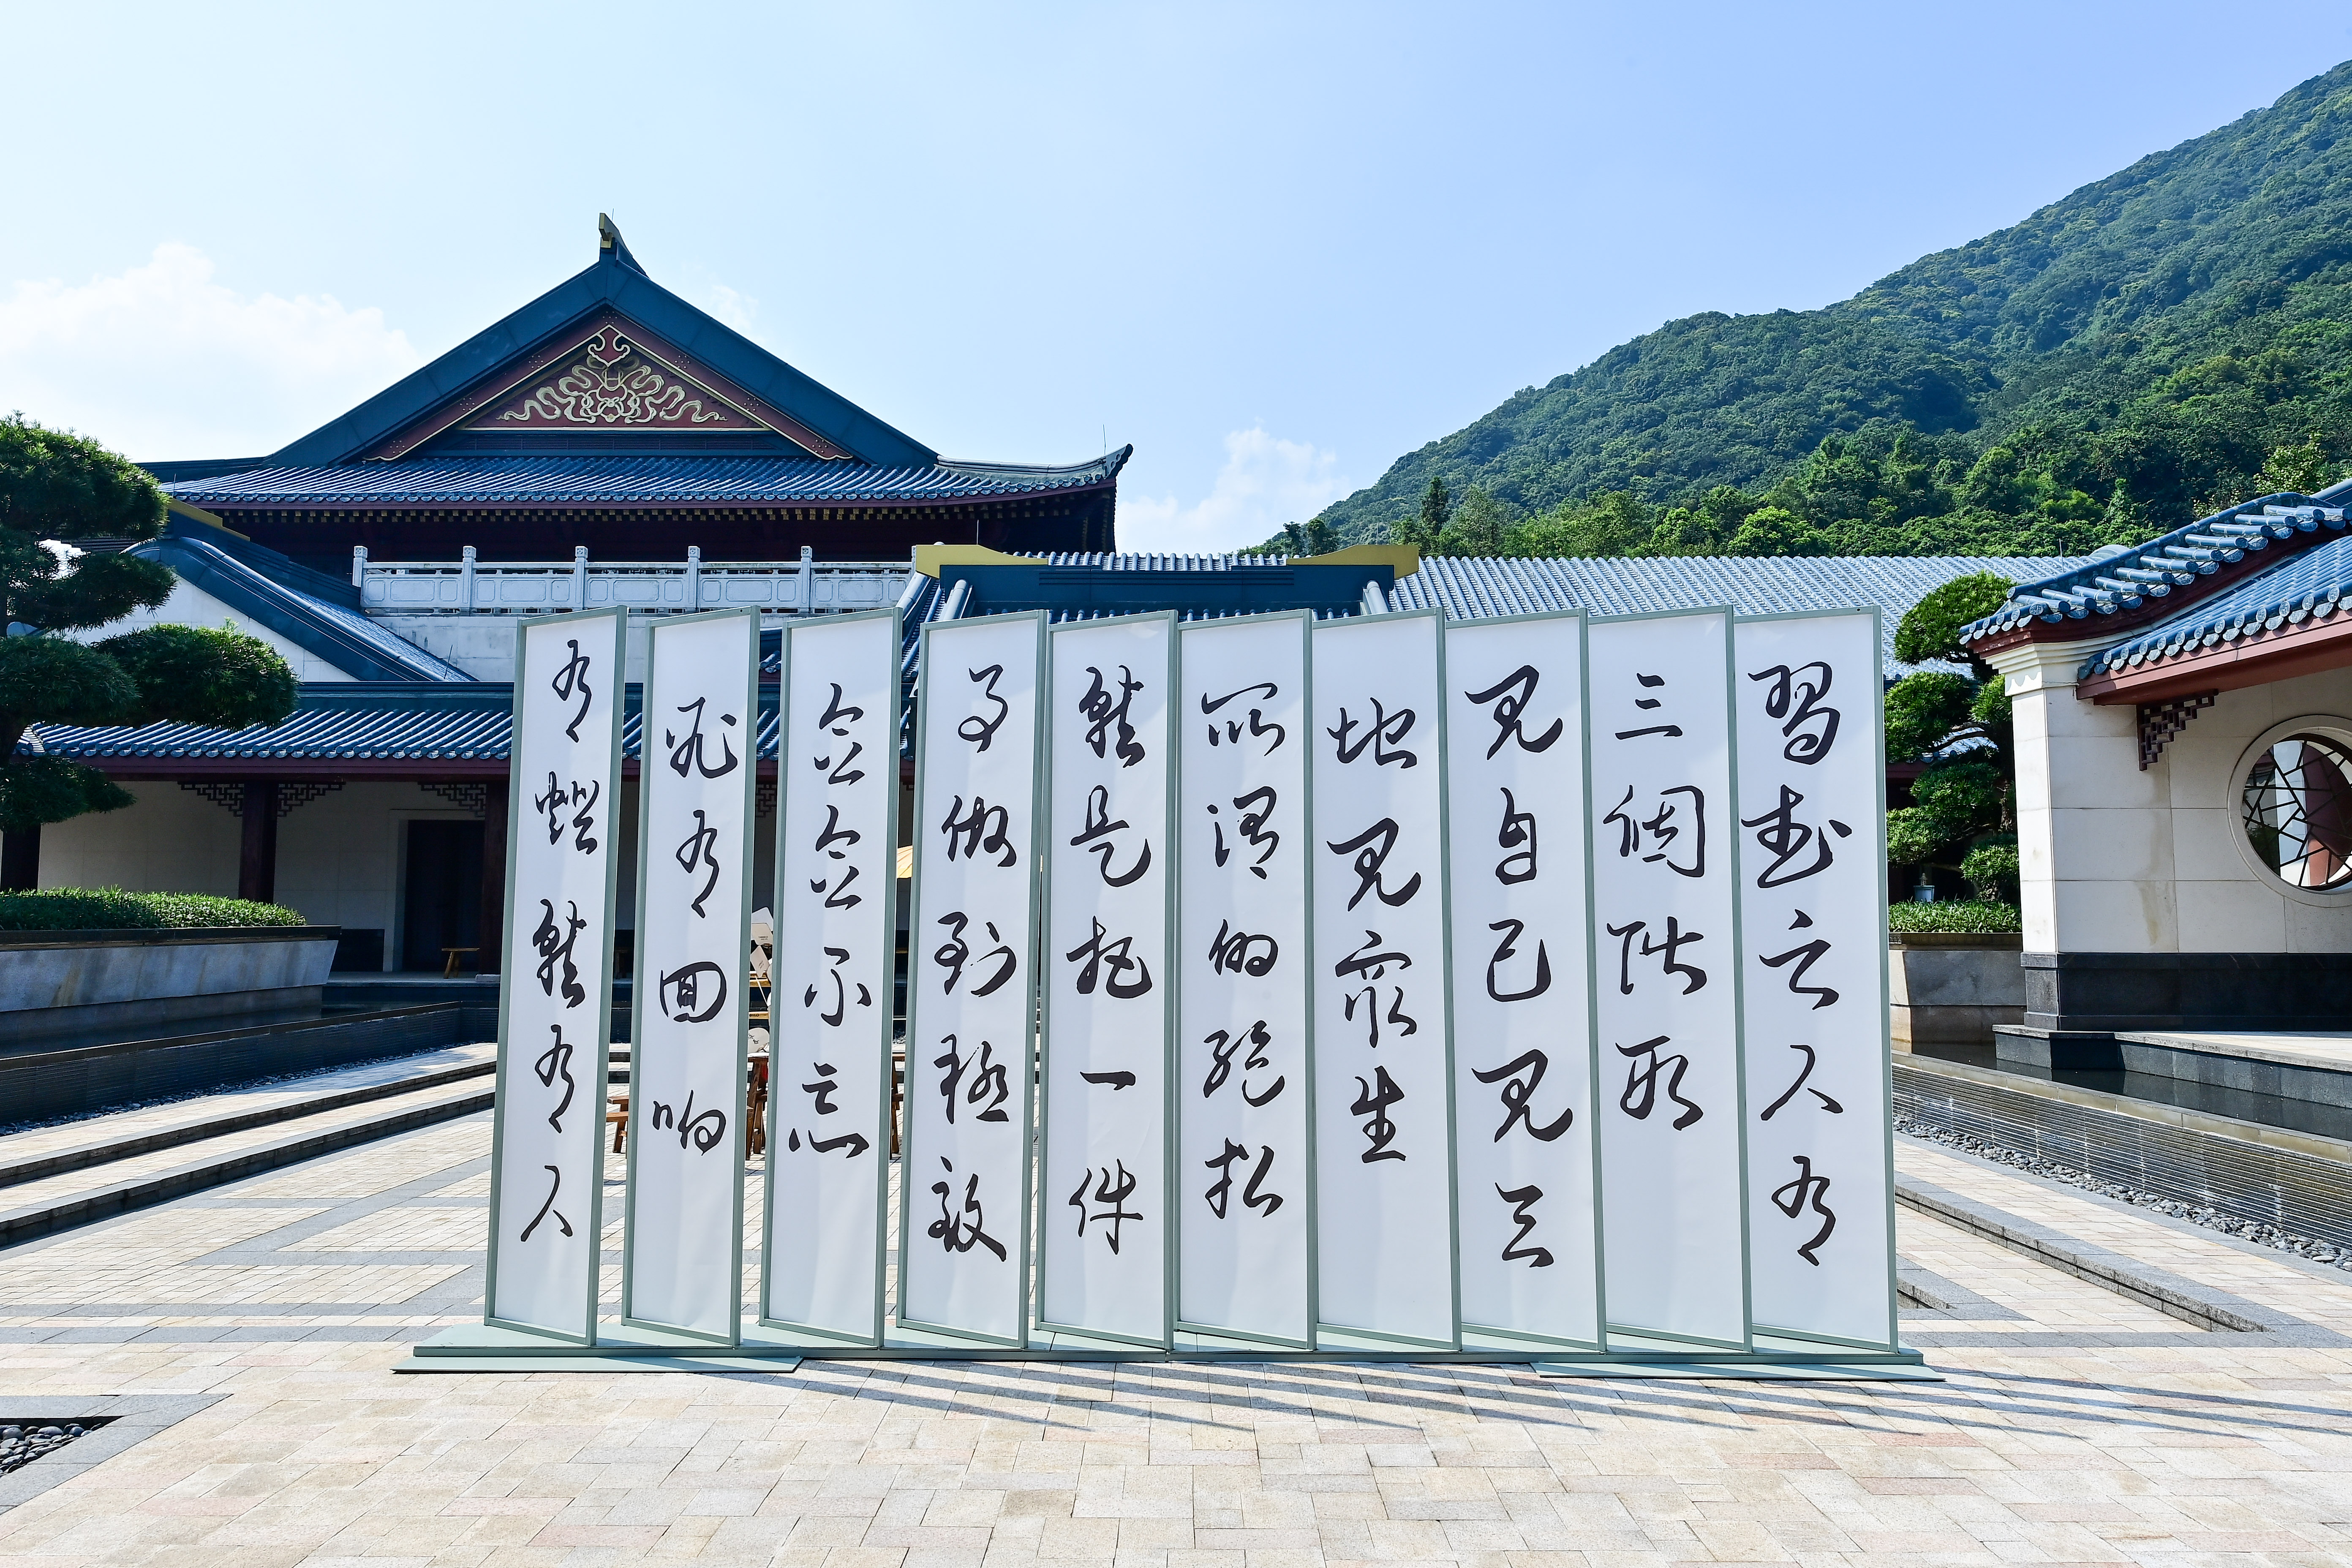 習武之人有
三個階段
見自己見天
地見眾生
所謂的絕招
就是把一件
事做到極致
念念不忘
必有回响
有燈就有人